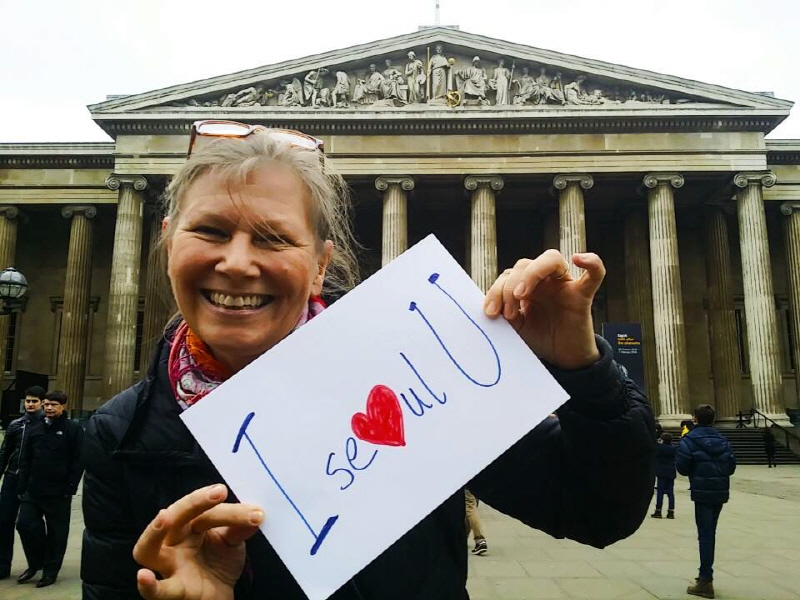 I se❤ul U